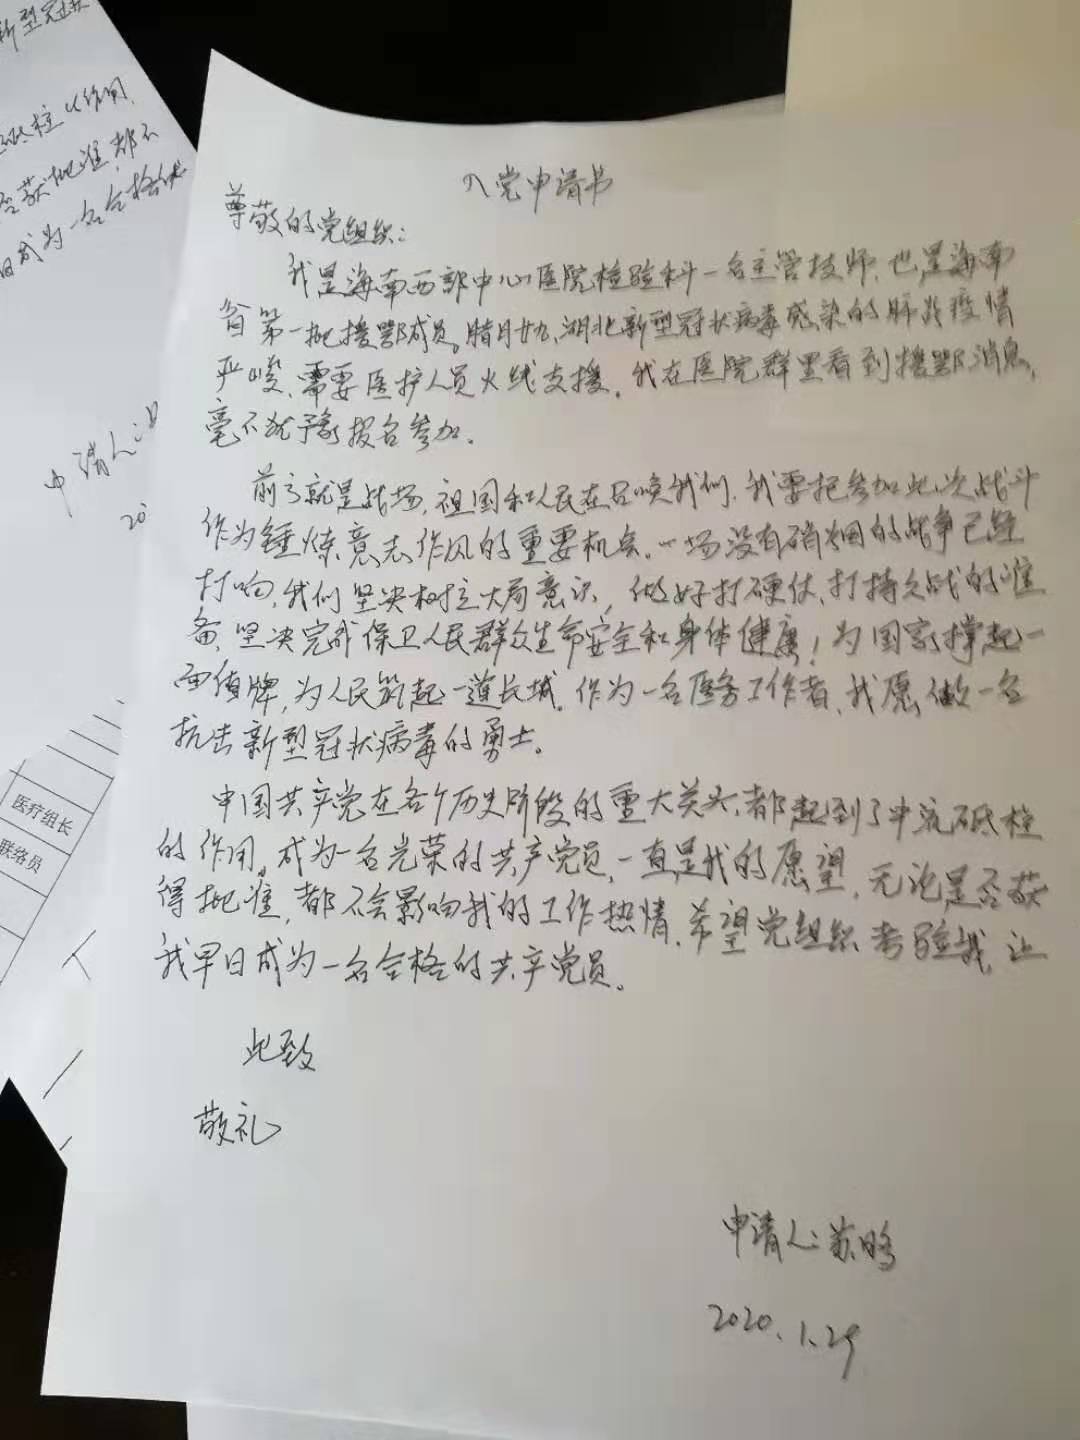 入党申请书
尊敬的党组织：
我是海南西部中心医院检验科一名主管技师，也是海南
省第一批援鄂成员。腊月廿九，湖北新型冠状病毒感染的肺炎疫情
严峻，需要医护人员火线支援。我在医院群里看到援鄂消息，
毫不犹豫报名参加。
前方就是战场，祖国和人民在召唤我们，我要把参加此次战斗
作为锤炼意志作风的重要机会。一场没有硝烟的战争已经
打响，我们坚决树立大局意识，做好打硬仗、打持久战的准
备，坚决完成保卫人民群众生命安全和身体健康！为国家撑起一
面盾牌，为人民筑起一道长城。作为一名医务工作者，我愿做一名
抗击新型冠状病毒的勇士。
中国共产党在各个历史阶段的重大关头，都起到了中流砥柱
的作用。成为一名光荣的共产党员，一直是我的愿望，无论是否获
得批准，都不会影响我的工作热情，希望党组织考验我，让
我早日成为一名合格的共产党员。
此致
敬礼
申请人：苏鸣
2020.1.29
新型冠状
砥柱的作用，
否获批准，都不
日成为一名合格
申请人：
20
医疗组长
联络员